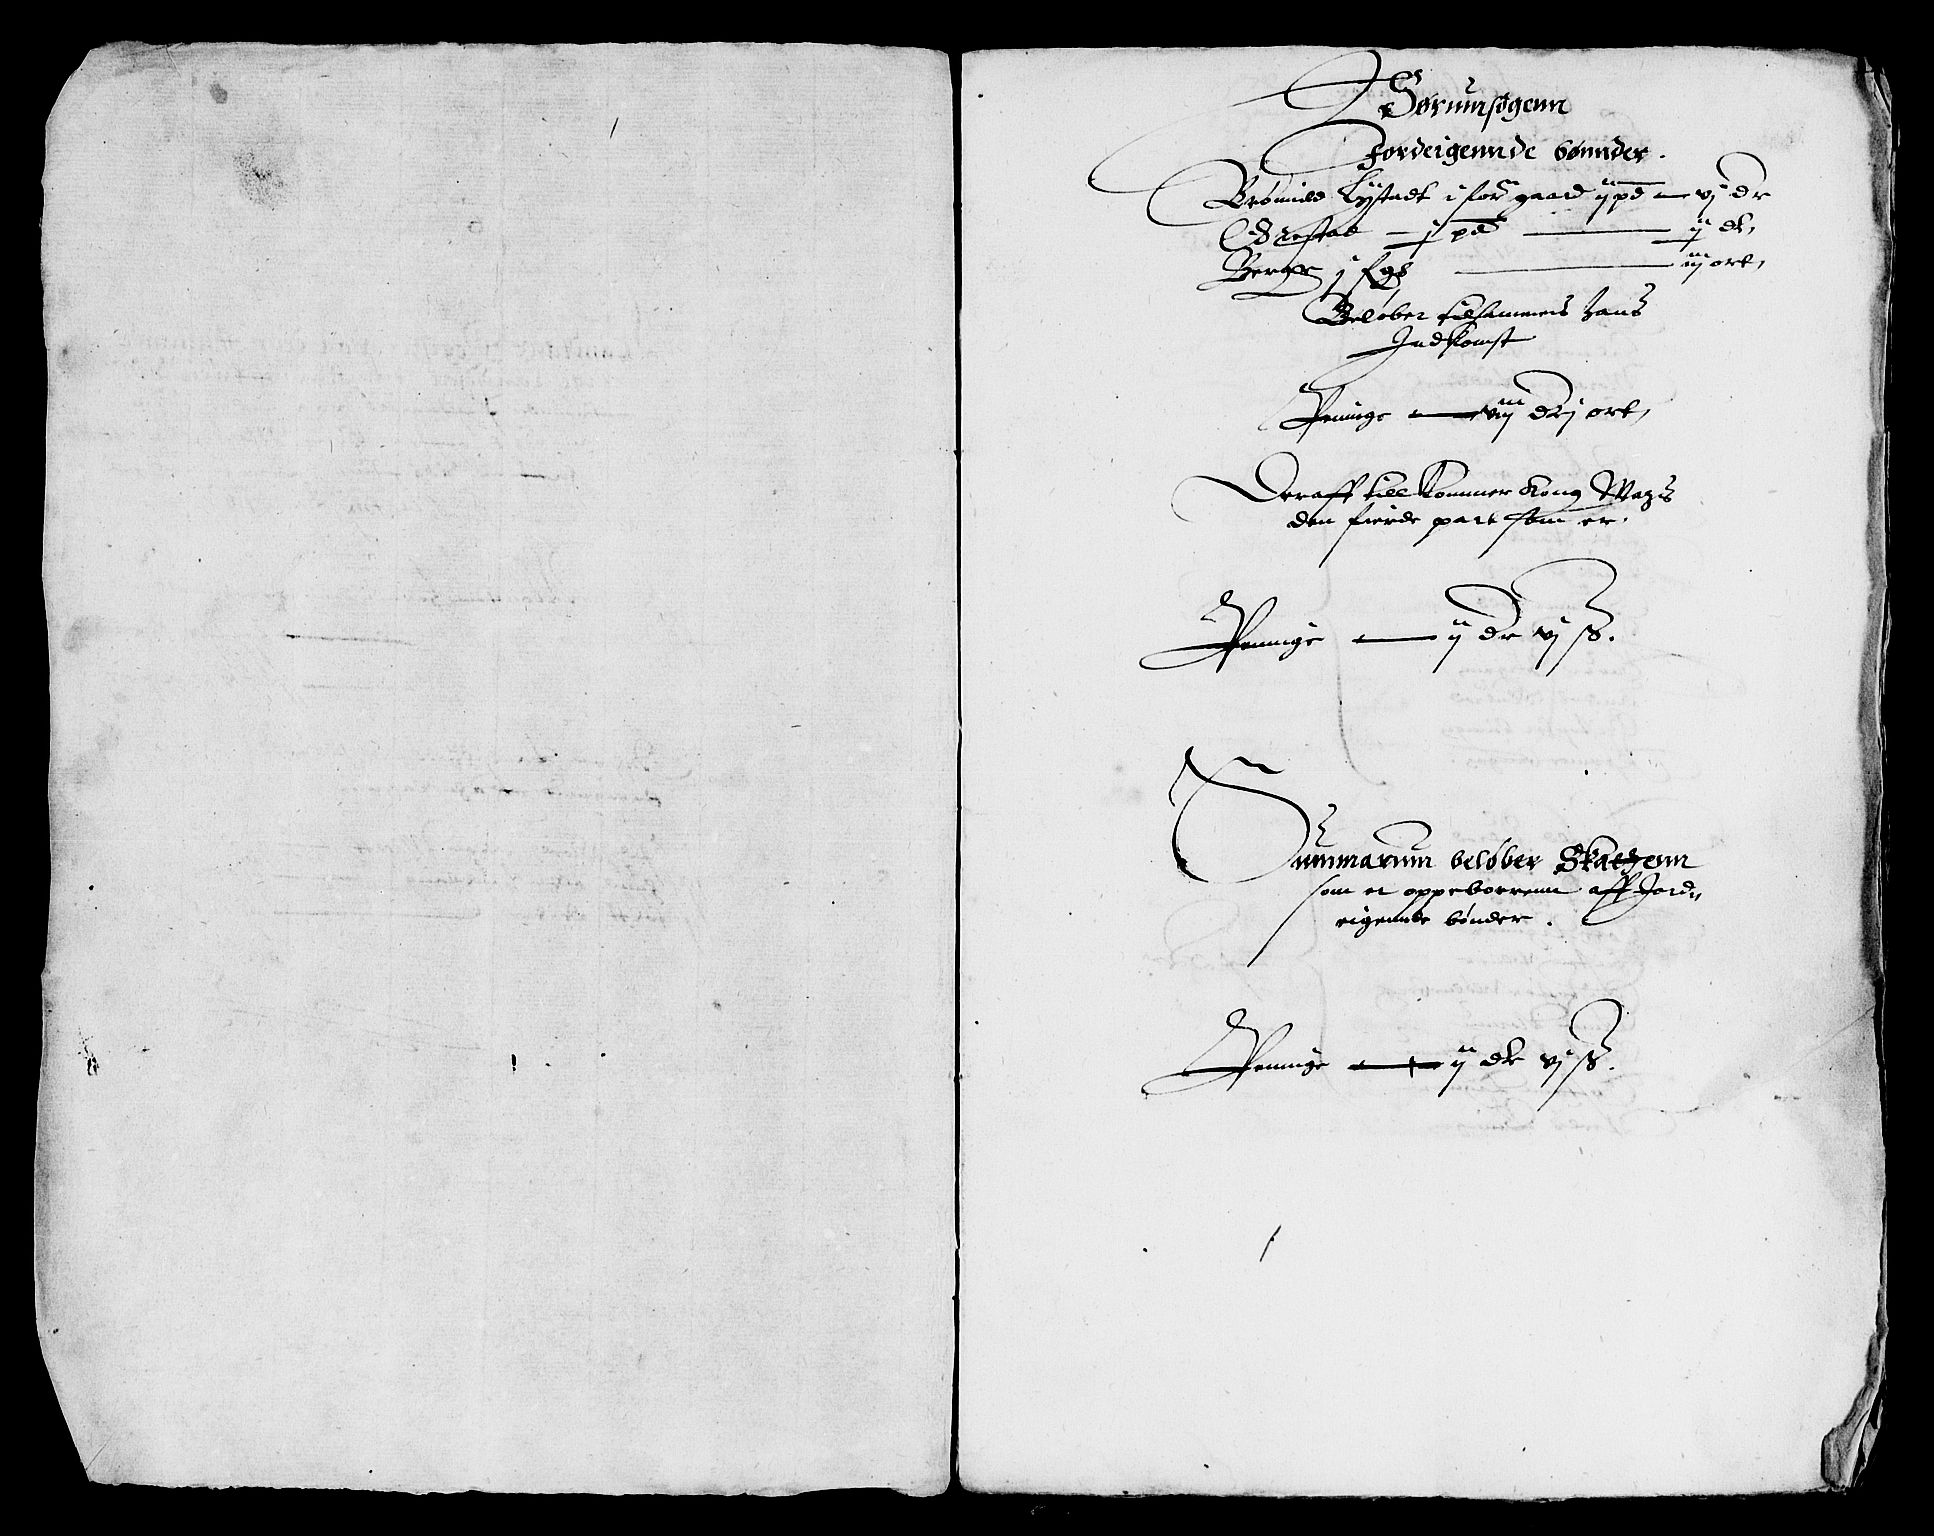 Sørumsogenn
Jordeigennde bønnder.
Lystadt i for gaard ij pd — vj dr
j pd — ij dr.
Berge j — iij ort,
Beløber tilsammens hans
Indkomst
Peninge — viij dr j ort,
Deraff till kommer Kong Mayts
den fierde part som er.
Peninge — ij dr vj ß.
Summarum beløber Skattenn
som er oppeborrenn aff Jord„
eigennde bønder.
Peninge — ij dr vj ß.